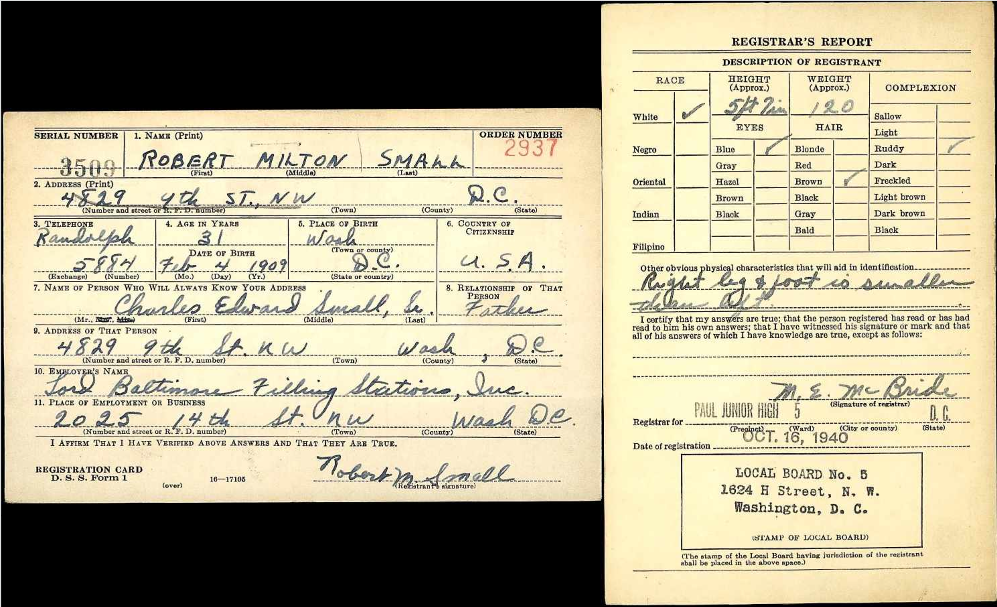 SERIAL NUMBER
1. NAME (Print)
ORDER NUMBER
3509
ROBERT MILTON SMALL
2937
(First) (Middle) (Last)
2. ADDRESS (Print)
4829 9th ST., NW D.C.
(Number and street or R. F. D. number) (Town) (County) (State)
3. TELEPHONE
4. AGE IN YEARS
5. PLACE OF BIRTH
6. COUNTRY OF CITIZENSHIP
Randolph
31
Wash
(Town or county)
DATE OF BIRTH
5884
Feb 4 1909
D.C.
U.S.A.
(Exchange) (Number)
(Mo.) (Day) (Yr.)
(State or country)
7. NAME OF PERSON WHO WILL ALWAYS KNOW YOUR ADDRESS
8. RELATIONSHIP OF THAT PERSON
Charles Edward Small, Sr.
Father
(Mr., Mrs., Miss) (First) (Middle) (Last)
9. ADDRESS OF THAT PERSON
4829 9th St. NW Wash, D.C.
(Number and street or R. F. D. number) (Town) (County) (State)
10. EMPLOYER'S NAME
Lord Baltimore Filling Stations, Inc.
11. PLACE OF EMPLOYMENT OR BUSINESS
2025 14th St. NW Wash D.C.
(Number and street or R. F. D. number) (Town) (County) (State)
I AFFIRM THAT I HAVE VERIFIED ABOVE ANSWERS AND THAT THEY ARE TRUE.
REGISTRATION CARD
D. S. S. Form 1
(over)
16—17105
Robert M. Small
(Registrant's signature)
REGISTRAR'S REPORT
DESCRIPTION OF REGISTRANT
RACE
HEIGHT (Approx.)
WEIGHT (Approx.)
COMPLEXION
5ft 7in
120
White ✓
Negro
Oriental
Indian
Filipino
EYES
Blue ✓
Gray
Hazel
Brown
Black
HAIR
Blonde
Red
Brown ✓
Black
Gray
Bald
Sallow
Light
Ruddy ✓
Dark
Freckled
Light brown
Dark brown
Black
Other obvious physical characteristics that will aid in identification
Right leg & foot is smaller
than left.
I certify that my answers are true; that the person registered has read or has had
read to him his own answers; that I have witnessed his signature or mark and that
all of his answers of which I have knowledge are true, except as follows:
M. E. McBride
(Signature of registrar)
PAUL JUNIOR HIGH 5 D.C.
Registrar for
(Precinct) (Ward) (City or county) (State)
Date of registration OCT. 16, 1940
LOCAL BOARD No. 5
1624 H Street, N. W.
Washington, D. C.
(STAMP OF LOCAL BOARD)
(The stamp of the Local Board having jurisdiction of the registrant
shall be placed in the above space.)